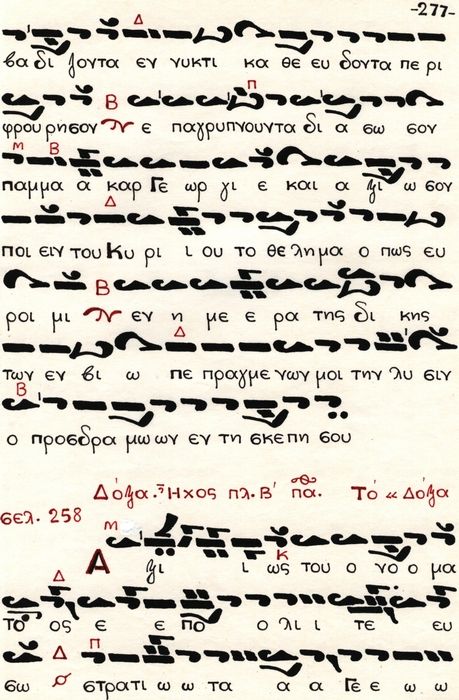 -277-
Δ
βα δι ζοντα εν νυκτι κα θε ευ δοντα πε ρι
Β Π
φρου ρησον ε παγρυπνουντα δι α σω σον
Μ Β
παμμα α καρ Γε ωρ γι ε και α ξι ω σον
Δ
ποι ειν του Κυ ρι ι ου το θε λημα ο πως ευ
Β
ροι μι εν η με ε ρα της δι κης
Δ
των εν βι ω πε πραγμε νων μοι την λυ σιν
Β
ο προσδρα μω ων εν τη σκεπη σου
Δόξα. Ἦχος πλ. Β΄ πα. Τό «Δόξα
σελ. 258
Μ Κ
Α ξι ι ως του ο νο ο μα
Δ
το ος ε ε πο ο λι ι τε ευ
Δ Π
σω στρατι ω ω τα α α Γε ε ω ω